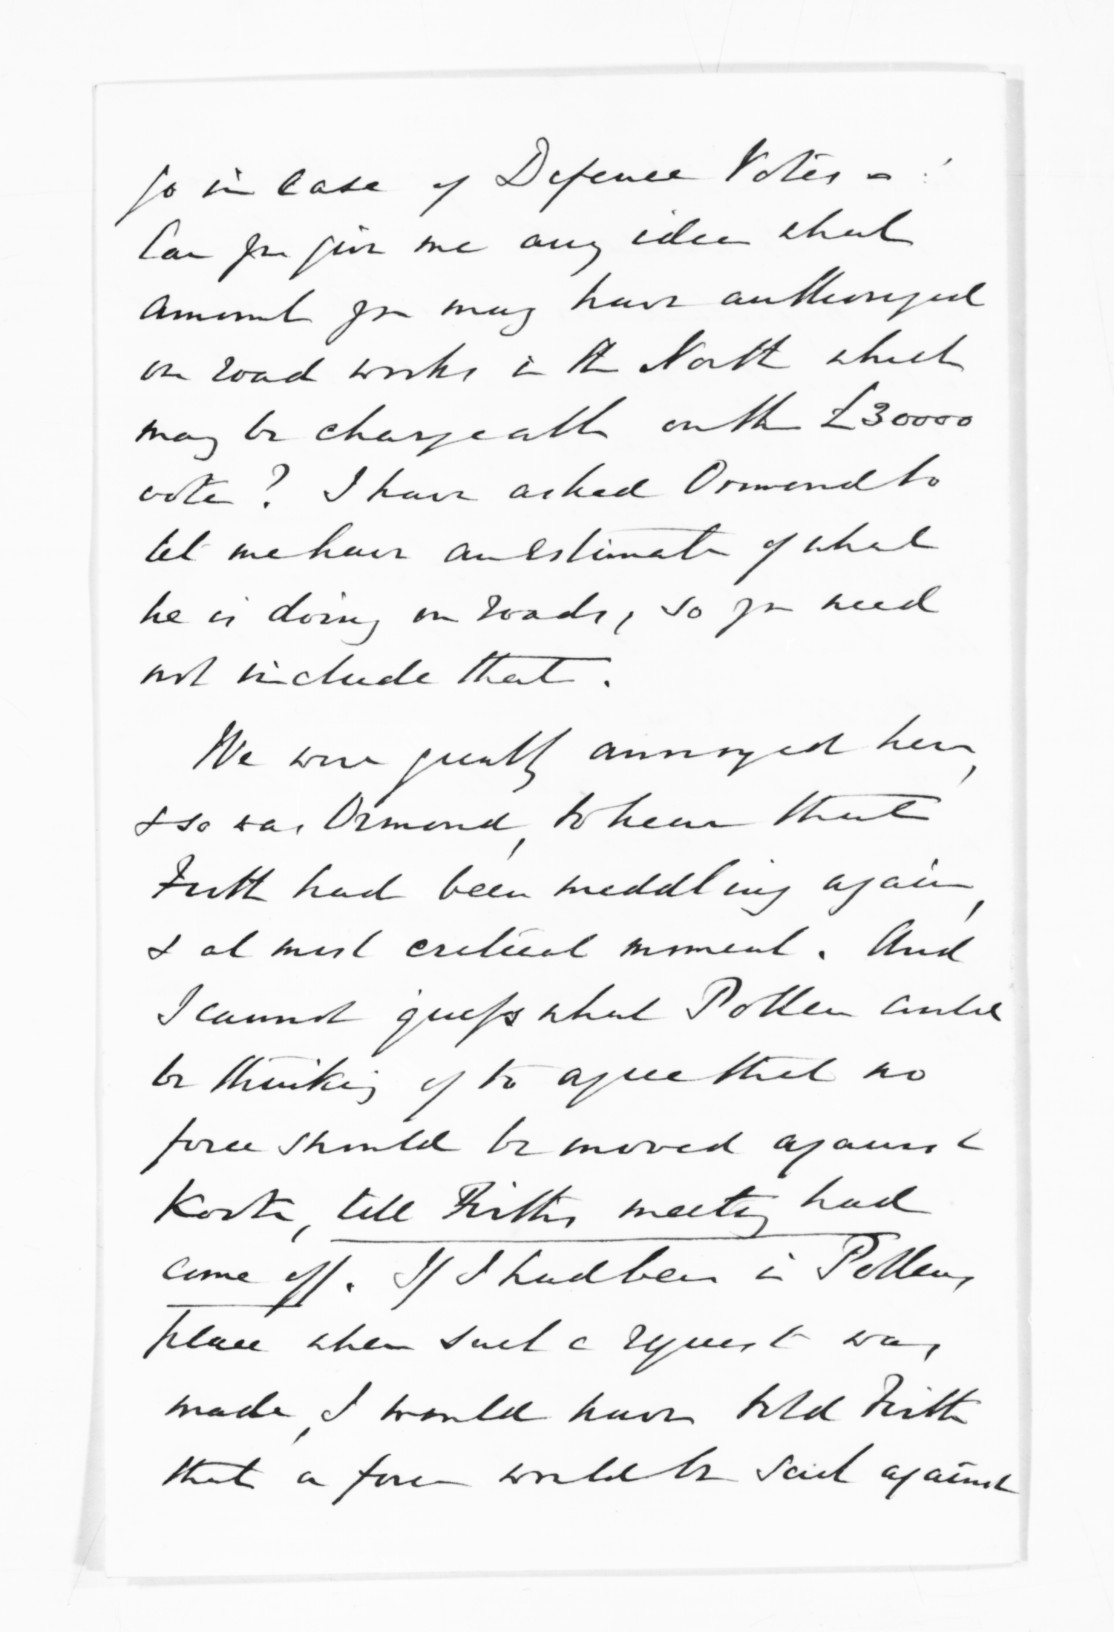 so in case of Defence Votes -
Can you give me any idea what
amount you may have authorized
on road works in the North which
may be chargeable on the £30000
vote? I have asked Ormond to
let me have an Estimate of what
he is doing on roads, so you need
not include that.
We were greatly annoyed here,
& so was Ormond, to hear that
Firth had been meddling again,
& at most critical moment. And
I cannot guess what Pollen could
be thinking of to agree that no
force should be moved against
Kooti, till Firth's meeting had
come off. If I had been in Pollen's
place when such a request was
made, I would have told Firth
that a force would be sent against